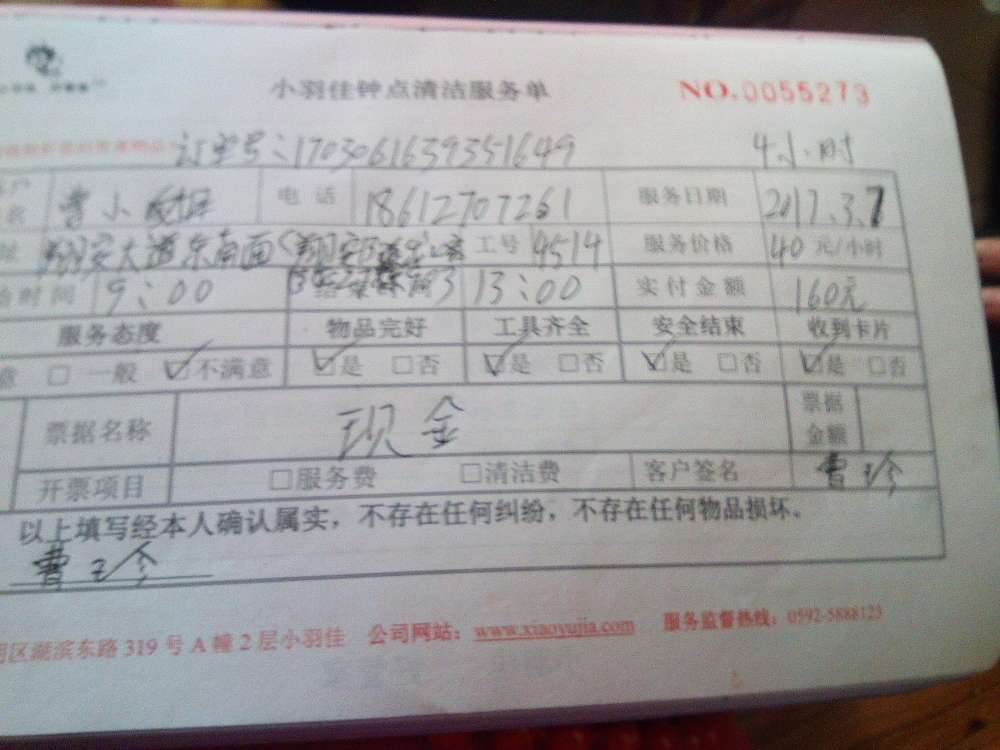 小羽佳钟点清洁服务单 NO.0055273
订单号:1703061639351649 4小时
名 曹小姐 电话 18612707261 服务日期 2017.3.7
址 翔安大道东南面 工号 9514 服务价格 40元/小时
时间 9:00 13:00 实付金额 160元
服务态度 物品完好 工具齐全 安全结束 收到卡片
意 □ 一般 ☑不满意 ☑是 □否 ☑是 □否 ☑是 □否 ☑是 □否
票据名称 现金 票据金额
开票项目 □服务费 □清洁费 客户签名 曹珍
以上填写经本人确认属实，不存在任何纠纷，不存在任何物品损坏。
曹珍
区湖滨东路319号A幢2层小羽佳 公司网站：www.xiaoyujia.com 服务监督热线：0592-5888123